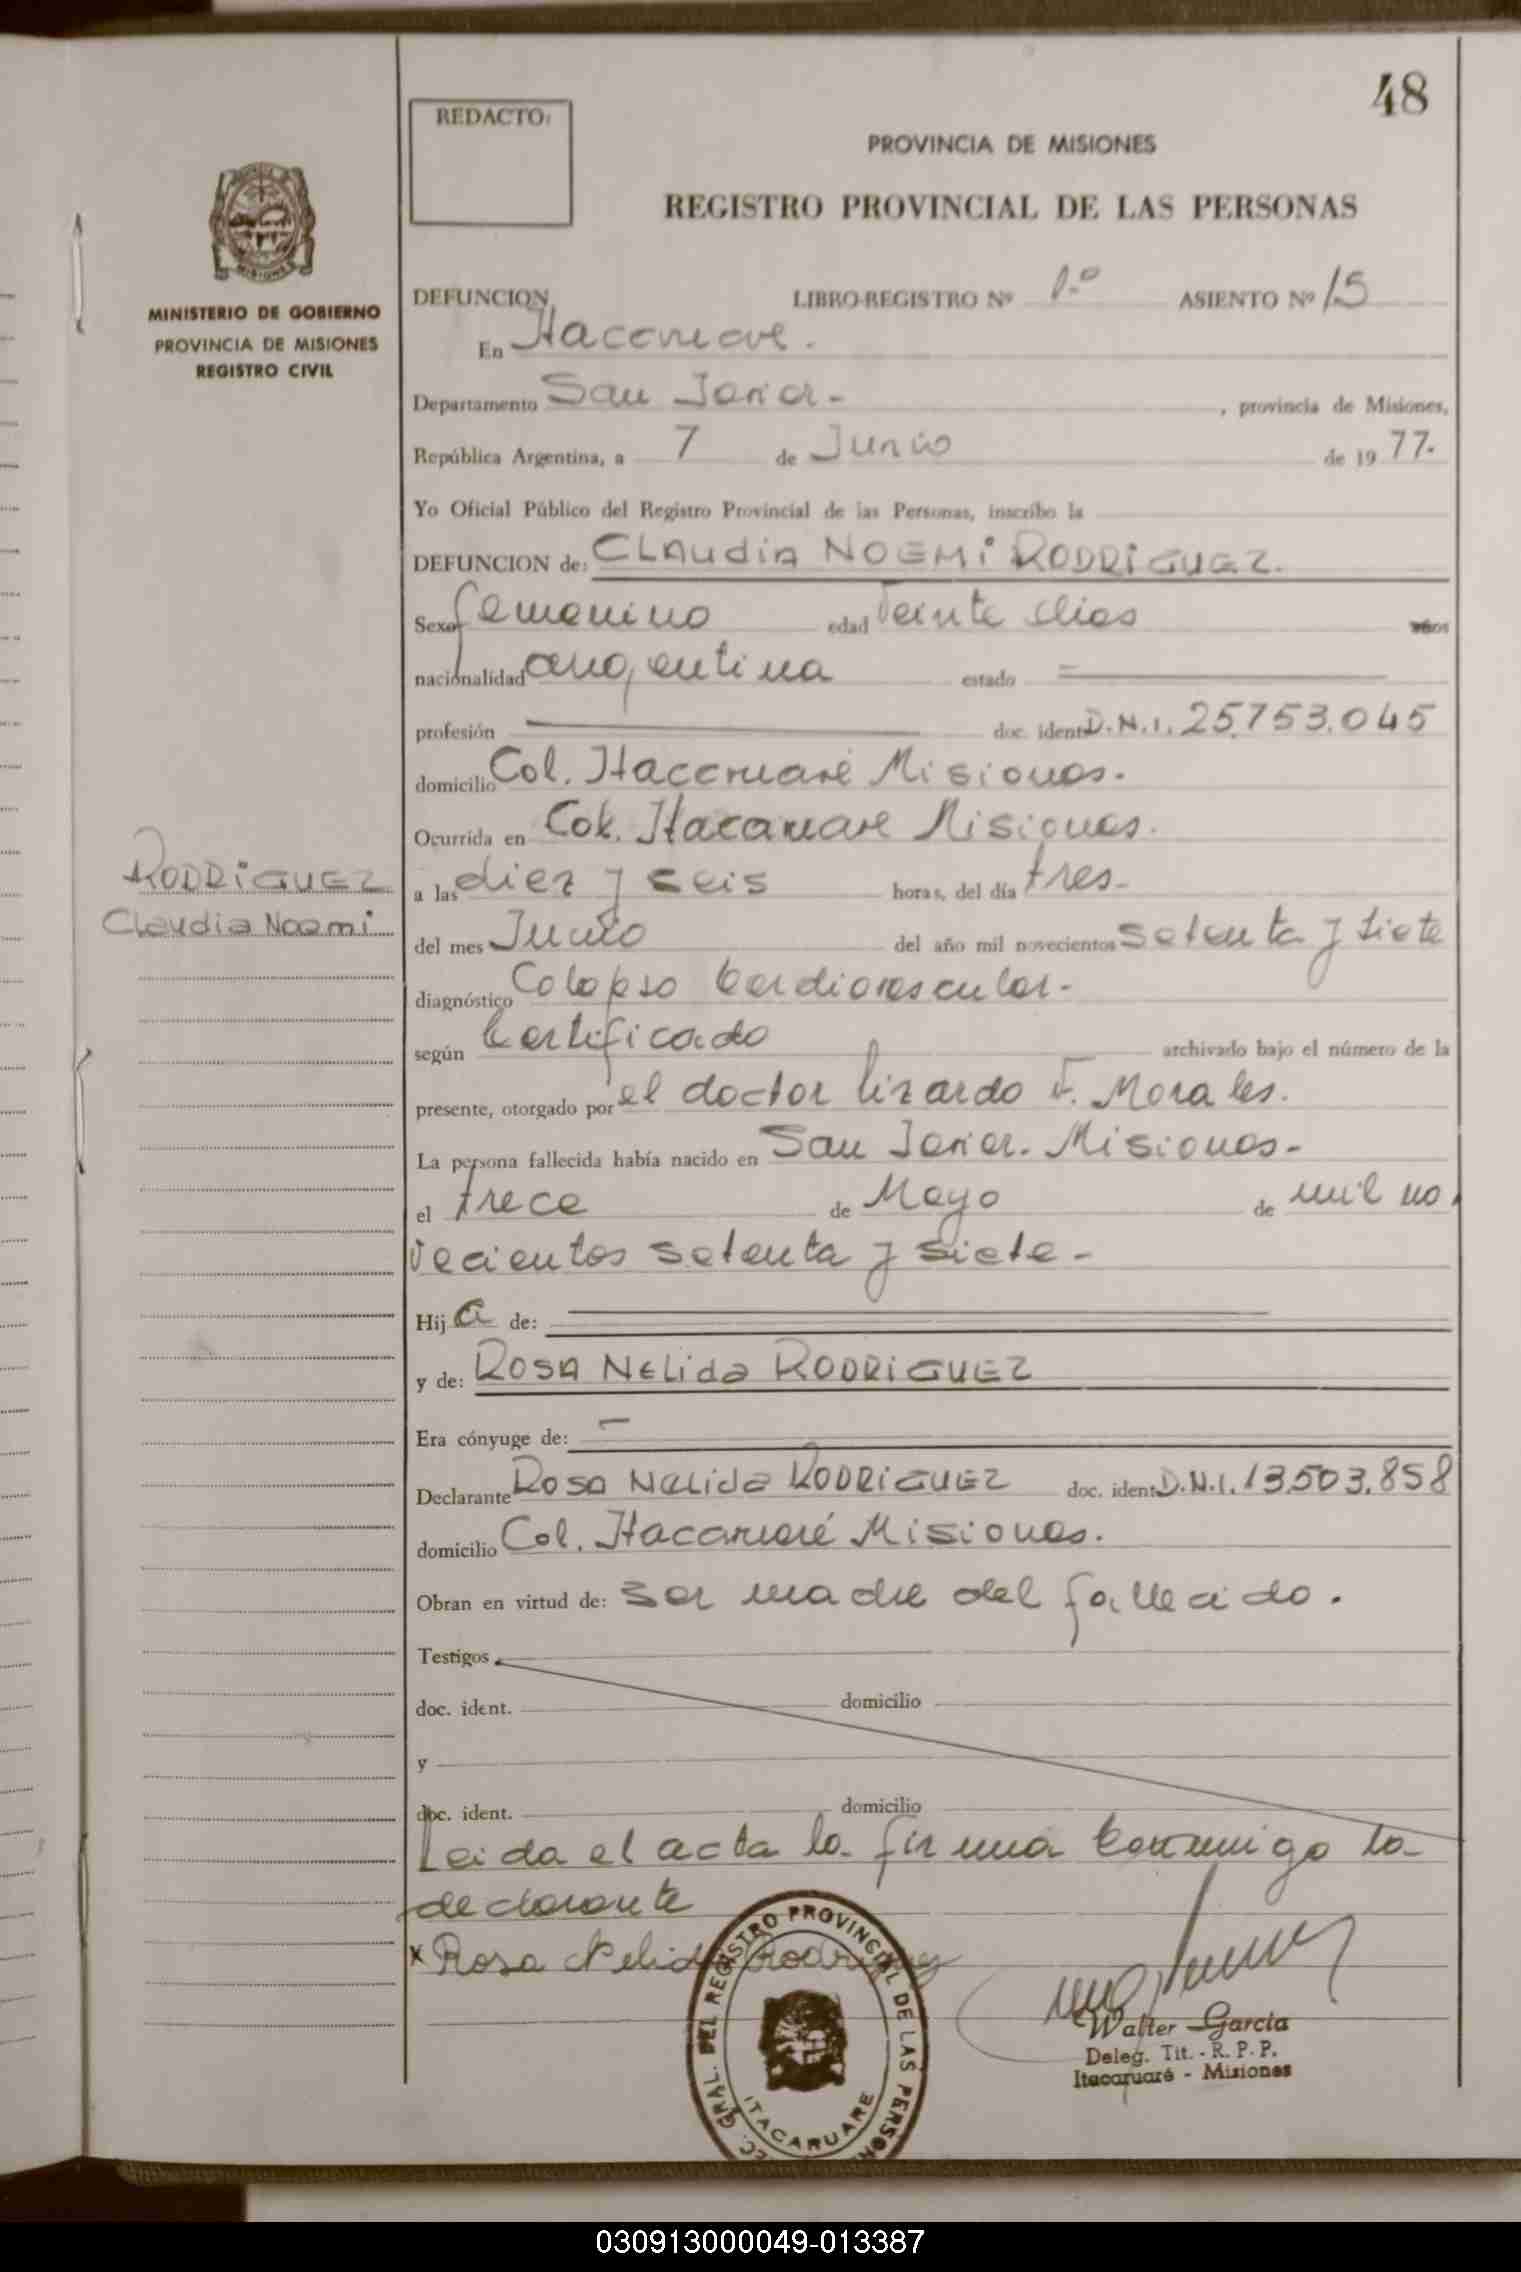 48
REDACTO:
PROVINCIA DE MISIONES
REGISTRO PROVINCIAL DE LAS PERSONAS
MISIONES
MINISTERIO DE GOBIERNO
PROVINCIA DE MISIONES
REGISTRO CIVIL
DEFUNCION LIBRO-REGISTRO Nº 1.º ASIENTO Nº 15
En Itacaruare.
Departamento San Javier - , provincia de Misiones,
República Argentina, a 7 de Junio de 19 77.
Yo Oficial Público del Registro Provincial de las Personas, inscribo la
DEFUNCION de: CLAUDIA NOEMI RODRIGUEZ.
Sexo femenino edad Veinte dias años
nacionalidad argentina estado
profesión doc. ident. D.N.I. 25.753.045
domicilio Col. Itacaruaré Misiones.
Ocurrida en Col. Itacaruare Misiones.
a las diez y seis horas, del día tres-
del mes Junio del año mil novecientos setenta y siete
diagnóstico Colapso Cardiovascular-
según Certificado archivado bajo el número de la
presente, otorgado por el doctor Lizardo F. Morales.
La persona fallecida había nacido en San Javier. Misiones-
el trece de Mayo de mil no
vecientos setenta y siete-
Hij a de:
y de: ROSA NELIDA RODRIGUEZ
Era cónyuge de: -
Declarante Rosa Nelida RODRIGUEZ doc. ident. D.N.I. 13.503.858
domicilio Col. Itacaruaré Misiones.
Obran en virtud de: ser madre del fallecido.
Testigos
doc. ident. domicilio
y
doc. ident. domicilio
Leida el acta la firma conmigo la
declarante
x Rosa Nelida Rodriguez
RODRIGUEZ
Claudia Noemi
GRAL. DEL REGISTRO PROVINCIAL DE LAS PERSON
ITACARUARE
Walter Garcia
Deleg. Tit. - R. P. P.
Itacaruaré - Misiones
030913000049-013387